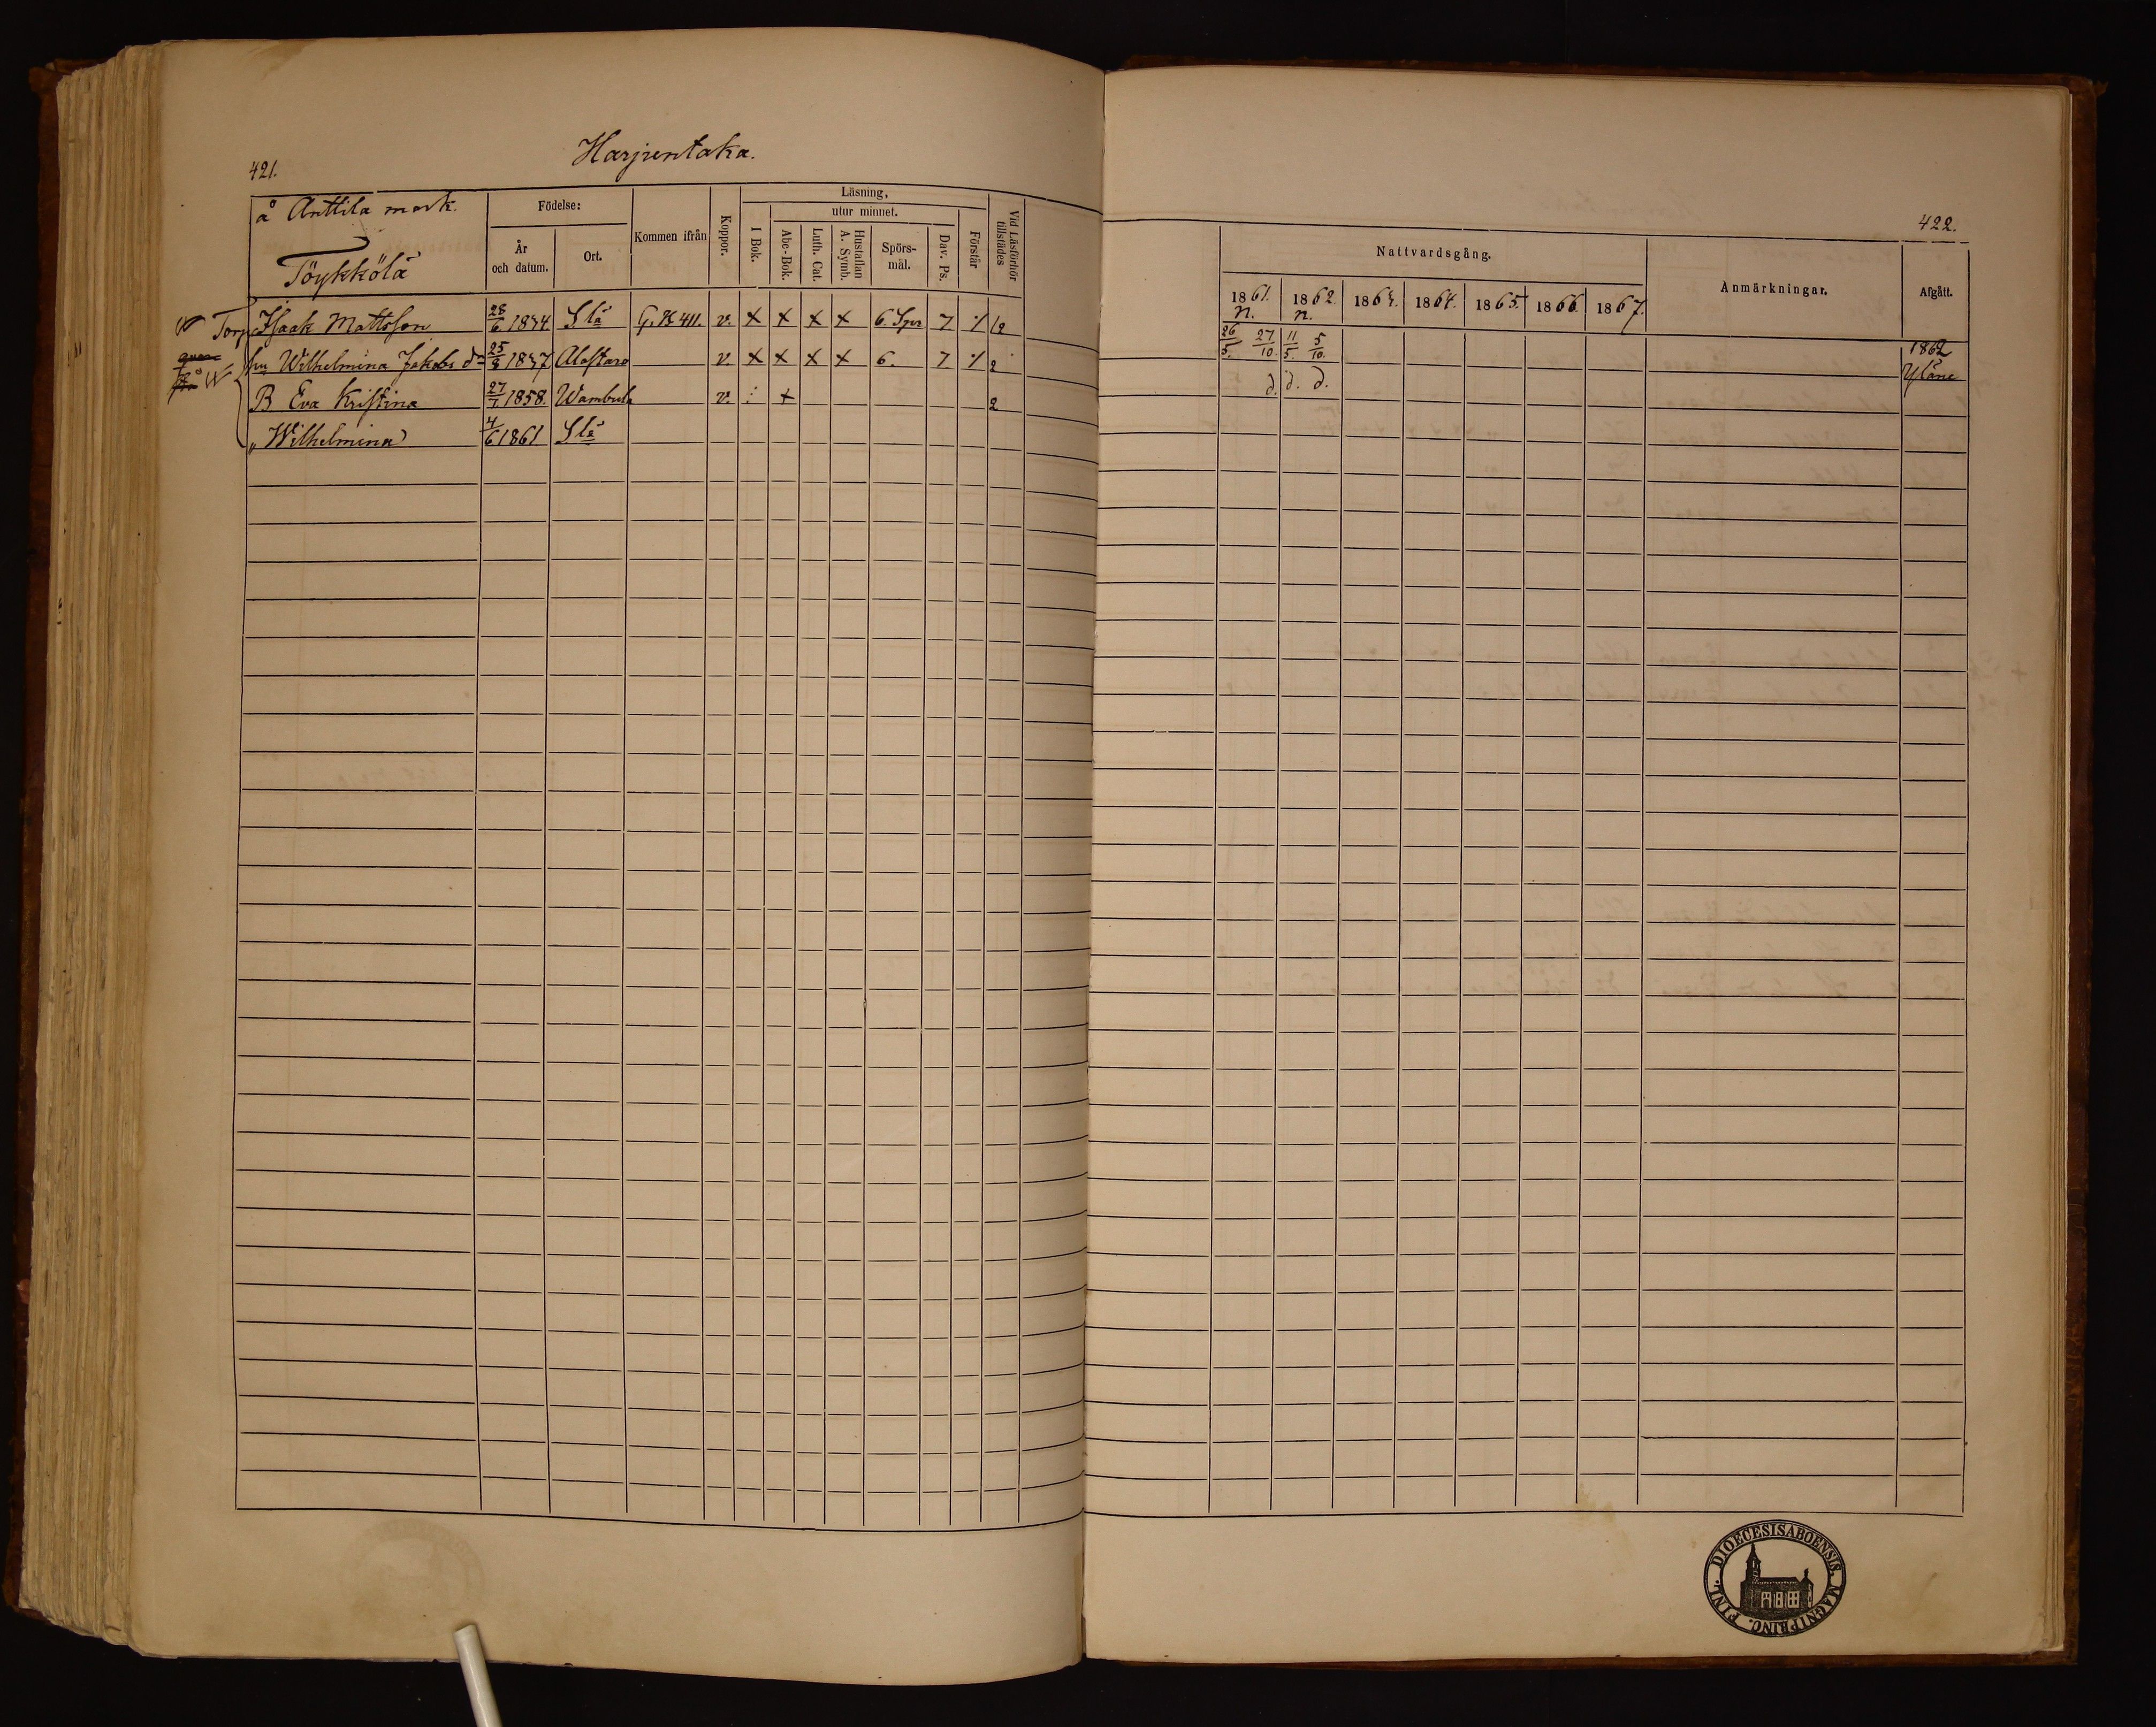 Harjuntaka.
421.
å Anttila mark.
Töykkölä
Födelse:
År och datum.
Ort.
Kommen ifrån
Koppor.
Läsning,
utur minnet.
I Bok.
Abc-Bok.
Luth. Cat.
Hustaflan A. Symb.
Spörsmål.
Dav. Ps.
Förstår
Vid Läsförhör tillstädes
Torp. Isaak Mattsson 28/6 1834 Slä G.B. 411. v. x x x x 6. Spr 7 ٪ 12
hu Wilhelmina Jakobs dr 25/3 1837 Alastaro v. x x x x 6. 7. ٪ 2
B Eva Kristina 27/1 1858. Wambula v. : + 2
„ Wilhelmina 4/6 1861 Slä
422.
Nattvardsgång.
Anmärkningar.
Afgått.
1861. 1862. 1863. 1864. 1865. 1866. 1867.
n. n.
26/5. 27/10. 11/5. 5/10.
d. d. d.
1862
Yläne
FINL. DIOECESIS ABOENSIS. MAGNI PRINC.